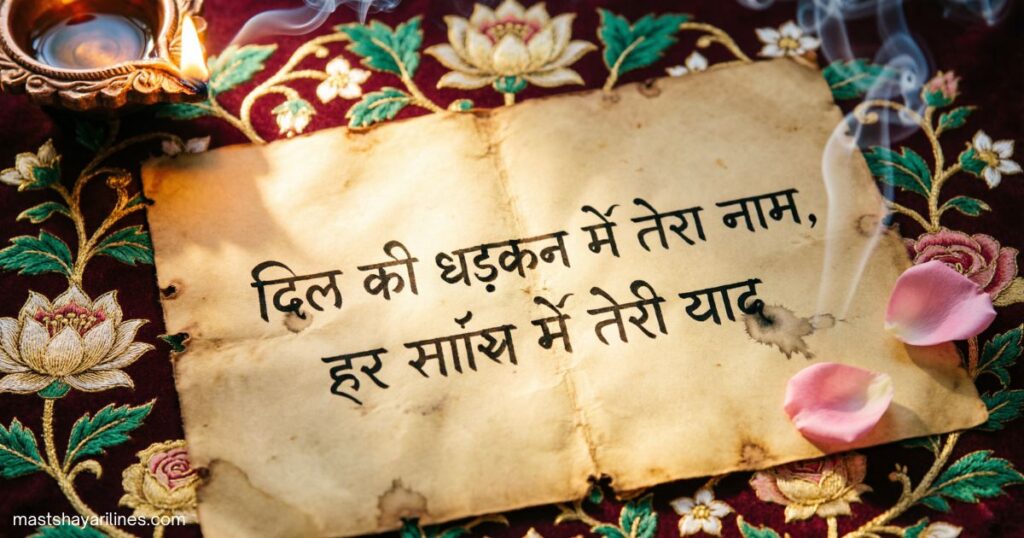 दिल की धड़कन में तेरा नाम,
हर में तेरी याद
mastshayarilines.com